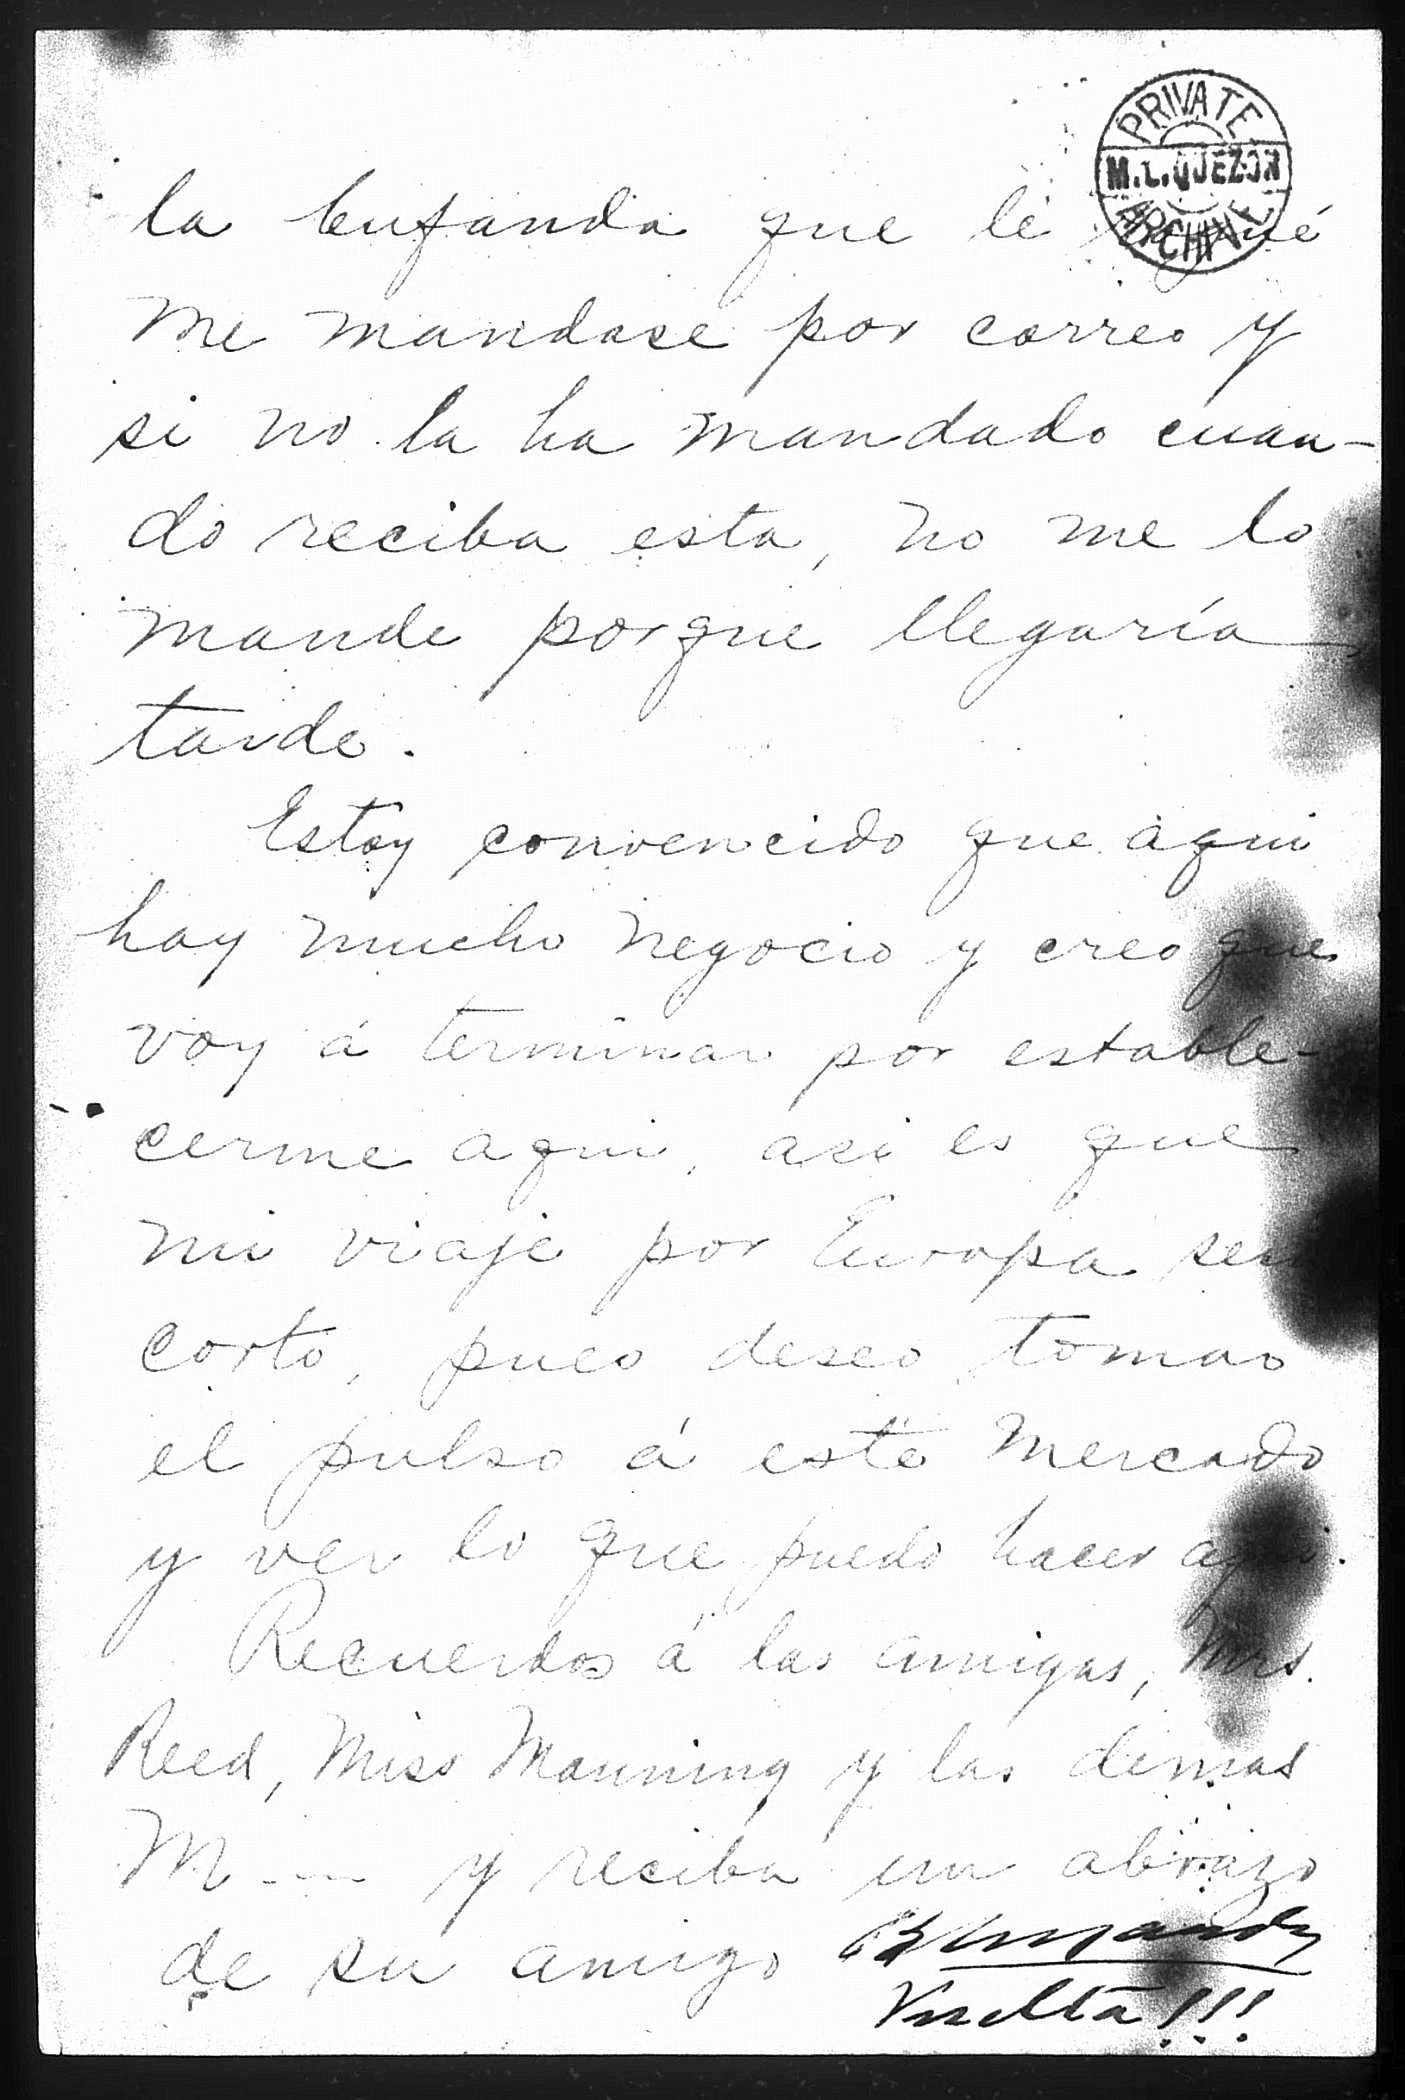 PRIVATE
M.L. QUEZON
ARCHIVE
la bufanda que le
me mandase por correo y
si no la ha mandado cuan-
do reciba esta, no me lo
mande porque llegaría
tarde.
Estoy convencido que aqui
hay mucho negocio y creo que
voy á terminar por estable-
cerme aqui, asi es que
mi viaje por Europa será
corto, pues deseo tomar
el pulso á este mercado
y ver lo que puedo hacer aqui.
Recuerdos á las amigas, Mrs.
Reed, Miss Manning y las demas
M --- y reciba un abrazo
de su amigo
Vuelta!!!